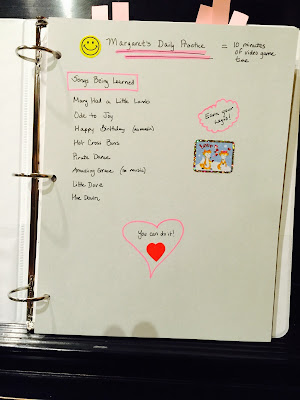 Margaret's Daily Practice = 10 minutes
of video game
time
Songs Being Learned
Mary Had a Little Lamb
Ode to Joy
Happy Birthday
Hot Cross Buns
Pirate Dance
Amazing Grace
Little Dove
Hoe Down
Earn your
lights!
You can do it!